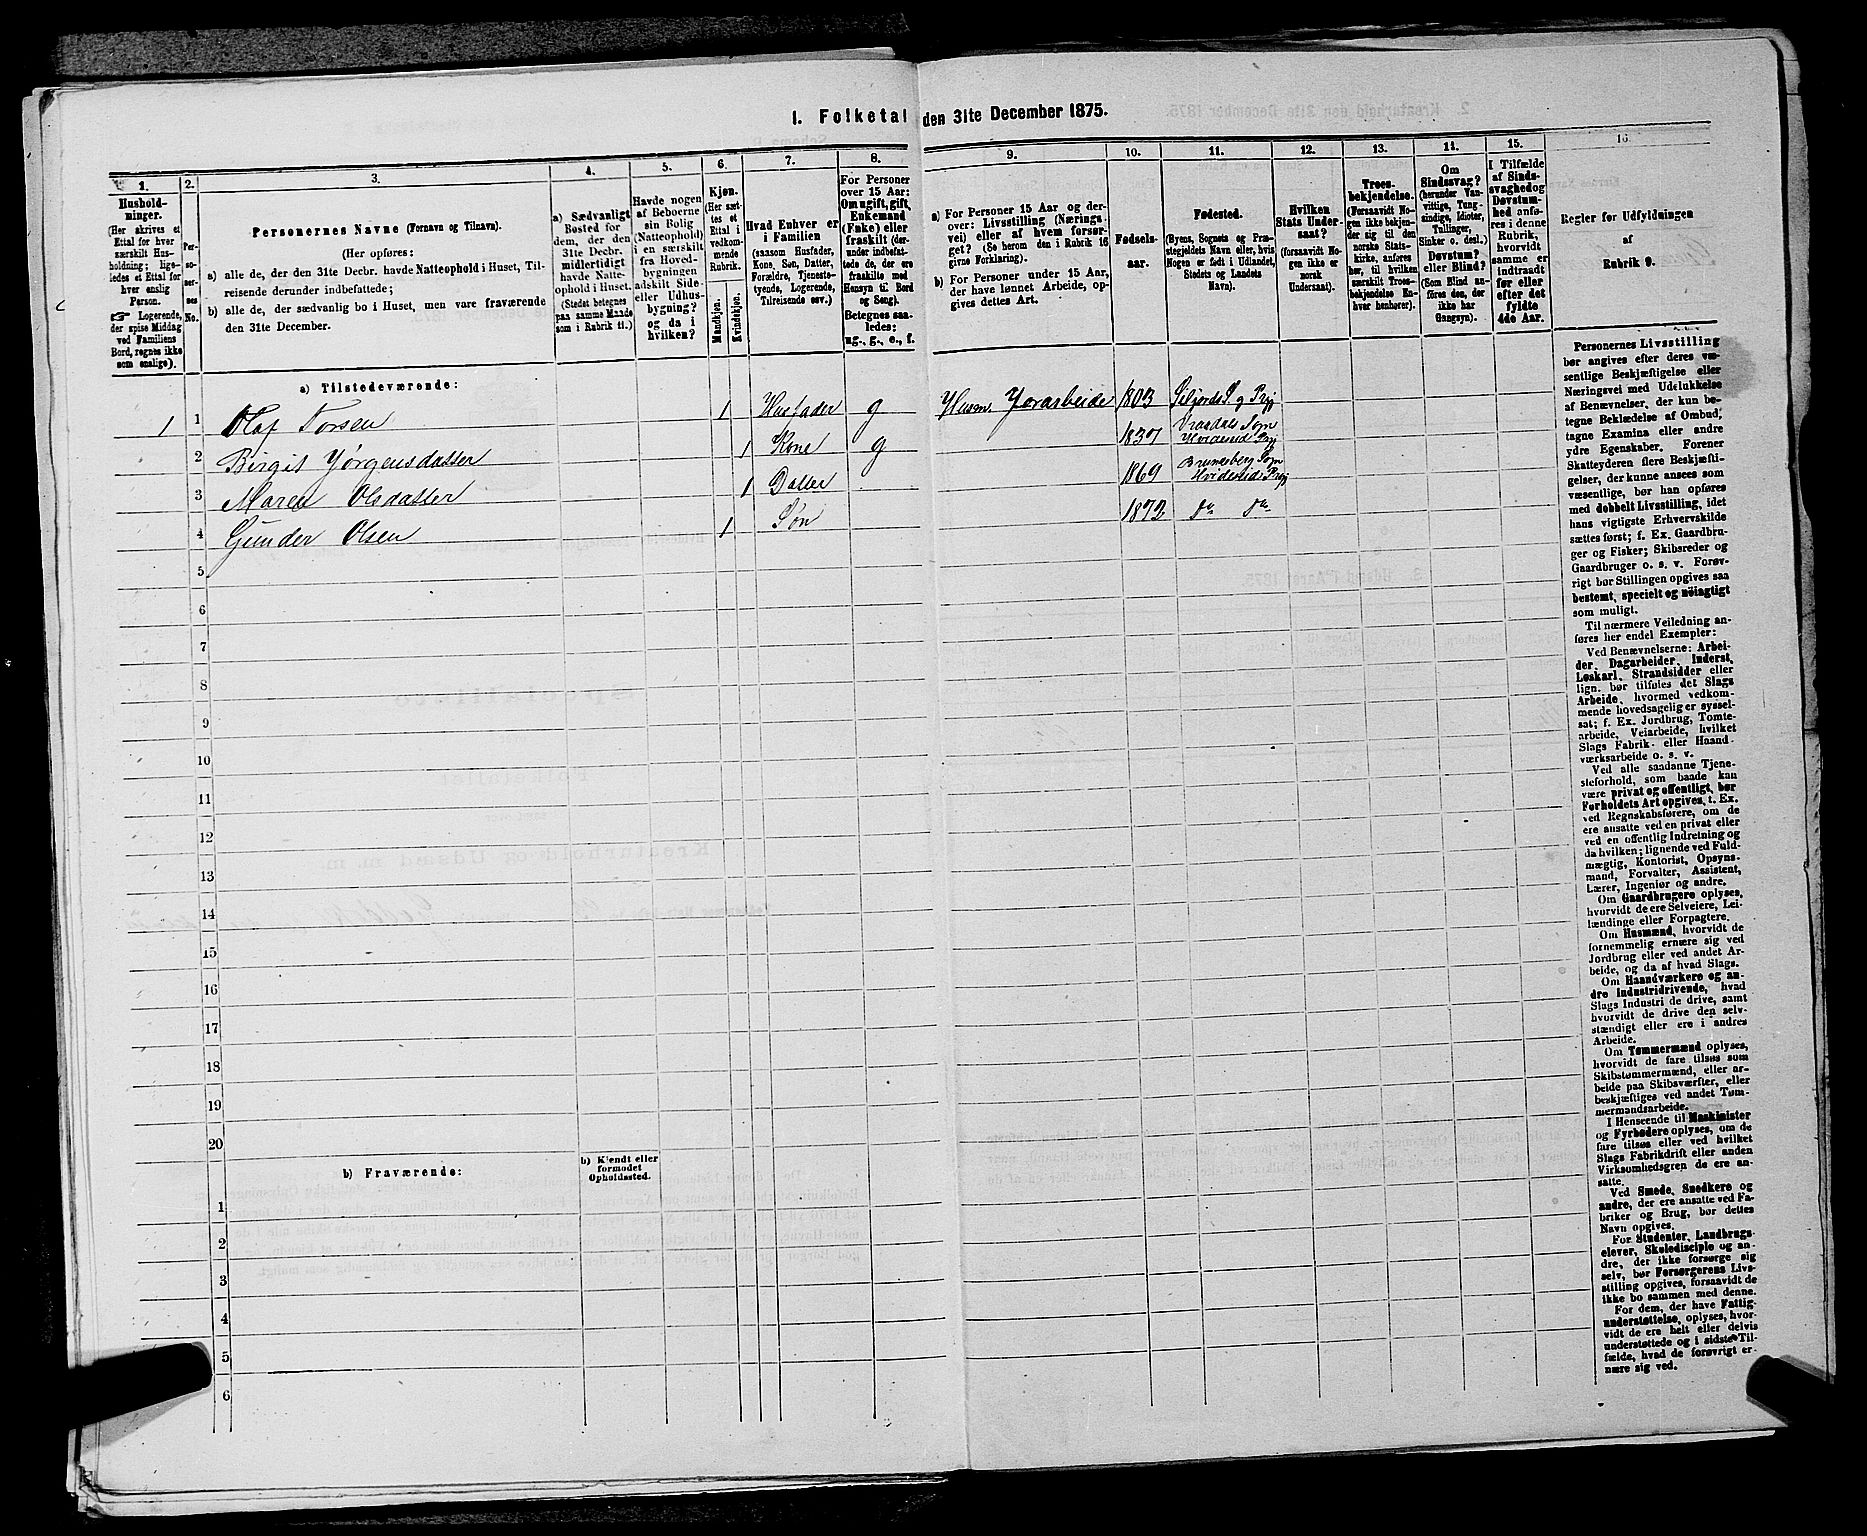 I. Folketal den 31te December 1875.
1.
2.
3.
4.
5.
6.
7.
8.
9.
10.
11.
12.
13.
14.
15.
16
Hushold-
ninger.
(Her skrives et
Ettal for hver
særskilt Hus-
holdning; lige-
ledes et Ettal for
hver enslig
Person.
☞ Logerende,
der spise Middag
ved Familiens
Bord, regnes ikke
som enslige).
Per-
so-
ner-
nes
No.
Personernes Navne (Fornavn og Tilnavn).
(Her opføres:
a) alle de, der den 31te Decbr. havde Natteophold i Huset, Til-
reisende derunder indbefattede;
b) alle de, der sædvanlig bo i Huset, men vare fraværende
den 31te December.
a) Sædvanligt
Bosted for
dem, der den
31te Decbr.
midlertidigt
havde Natte-
ophold i Huset.
(Stedet betegnes
paa samme Maade
som i Rubrik 11.)
Havde nogen
af Beboerne
sin Bolig
(Natteophold)
i en særskilt
fra Hoved-
bygningen
adskilt Side-
eller Udhus-
bygning?
og da i
hvilken?
Kjøn.
(Her sæt-
tes et
Ettal i
vedkom-
mende
Rubrik.
Mandkjøn.
Kvindekjøn.
Hvad Enhver er
i Familien
(saasom Husfader,
Kone, Søn, Datter,
Forældre, Tjeneste-
tyende, Logerende,
Tilreisende osv.)
For Personer
over 15 Aar:
Om ugift, gift,
Enkemand
(Enke) eller
fraskilt (der-
under indbefat-
tede de, der ere
fraskilte med
Hensyn til Bord
og Seng).
Betegnes saa-
ledes:
ug., g., e., f.
a) For Personer 15 Aar og der-
over: Livsstilling (Nærings-
vei) eller af hvem forsør-
get? (Se herom den i Rubrik 16
givne Forklaring).
b) For Personer under 15 Aar,
der have lønnet Arbeide, op-
gives dettes Art.
Fødsels-
aar.
Fødested.
(Byens, Sognets og Præ-
stegjeldets Navn eller, hvis
Nogen er født i Udlandet,
Stedets og Landets
Navn).
Hvilken
Stats Under-
saat?
(forsaavidt No-
gen ikke er
norsk
Undersaat).
Troes-
bekjendelse.
(Forsaavidt No-
gen ikke bekjen-
der sig til den
norske Stats-
kirke, anføres
her, til hvilken
særskilt Troes-
bekjendelse En-
hver henhører).
Om
Sindssvag?
(herunder Van-
vittige, Tung-
sindige, Idioter,
Tullinger,
Sinker o. desl.)
Døvstum?
eller Blind?
(Som Blind an-
føres den, der
ikke har
Gangsyn).
I Tilfælde
af Sinds-
svaghed og
Døvstum-
hed anfø-
res i denne
Rubrik,
hvorvidt
samme er
indtraadt
før eller
efter det
fyldte
4de Aar.
Regler for Udfyldningen
af
Rubrik 9.
a) Tilstedeværende:
1 1 Olaf Torsen 1 Husfader g Husm. Jorarbeide 1803
2 Birgit Jørgensdatter 1 Kone g 1837
3 Maren Olsdatter 1 Datter 1869
4 Gunder Olsen 1 Søn 1872 do do
5
6
7
8
9
10
11
12
13
14
15
16
17
18
19
20
b) Fraværende:
b) Kjendt eller
formodet
Opholdssted.
1
2
3
4
5
6
Personernes Livsstilling
bør angives efter deres væ-
sentlige Beskjæftigelse eller
Næringsvei med Udelukkelse
af Benævnelser, der kun be-
tegne Beklædelse af Ombud,
tagne Examina eller andre
ydre Egenskaber. Forener
Skatteyderen flere Beskjæfti-
gelser, der kunne ansees som
væsentlige, bør han opføres
med dobbelt Livsstilling, idet
hans vigtigste Erhvervskilde
sættes først; f. Ex. Gaardbru-
ger og Fisker; Skibsreder og
Gaardbruger o. s. v. Forøv-
rigt bør Stillingen opgives saa
bestemt, specielt og nøiagtigt
som muligt.
Til nærmere Veiledning an-
føres her endel Exempler:
Ved Benævnelserne: Arbei-
der, Dagarbeider, Inderst,
Løskarl, Strandsidder eller
lign. bør tilføies det Slags
Arbeide, hvormed vedkom-
mende hovedsagelig er syssel-
sat; f. Ex. Jordbrug, Tomte-
arbeide, Veiarbeide, hvilket
Slags Fabrik- eller Haand-
værksarbeide o. s. v.
Ved alle saadanne Tjene-
steforhold, som baade kan
være privat og offentligt, bør
Forholdets Art opgives, t. Ex.
ved Regnskabsførere, om de
ere ansatte ved en privat eller
ved en offentlig Indretning og
da hvilken; lignende ved Fuld-
mægtig, Kontorist, Opsyns-
mand, Forvalter, Assistent,
Lærer, Ingeniør og andre.
Om Gaardbrugere oplyses,
hvorvidt de ere Selveiere, Lei-
lændinge eller Forpagtere.
Om Husmænd, hvorvidt de
fornemmelig ernære sig ved
Jordbrug eller ved andet Ar-
beide, og da af hvad Slags.
Om Haandværkere og an-
dre Industridrivende, hvad
Slags Industri de drive, samt
hvorvidt de drive den selv-
stændigt eller ere i andres
Arbeide.
Om Tømmermænd oplyses,
hvorvidt de fare tilsøs som
Skibstømmermænd, eller ar-
beide paa Skibsværfter, eller
beskjæftiges ved andet Tøm-
mermandsarbeide.
I Henseende til Maskinister
og Fyrbødere oplyses, om de
fare tilsøs eller ved hvilket
Slags Fabrikdrift eller anden
Virksomhedsgren de ere an-
satte.
Ved Smede, Snedkere og
andre, der ere ansatte ved Fa-
briker og Brug, bør dettes
Navn opgives.
For Studenter, Landbrugs-
elever, Skoledisciple og an-
dre, der ikke forsørge sig
selv, bør Forsørgerens Livs-
stilling opgives, forsaavidt de
ikke bo sammen med denne.
For dem, der have Fattig-
understøttelse, oplyses, hvor-
vidt de ere helt eller delvis
understøttede og i sidste Til-
fælde, hvad de forøvrigt er-
nære sig ved.